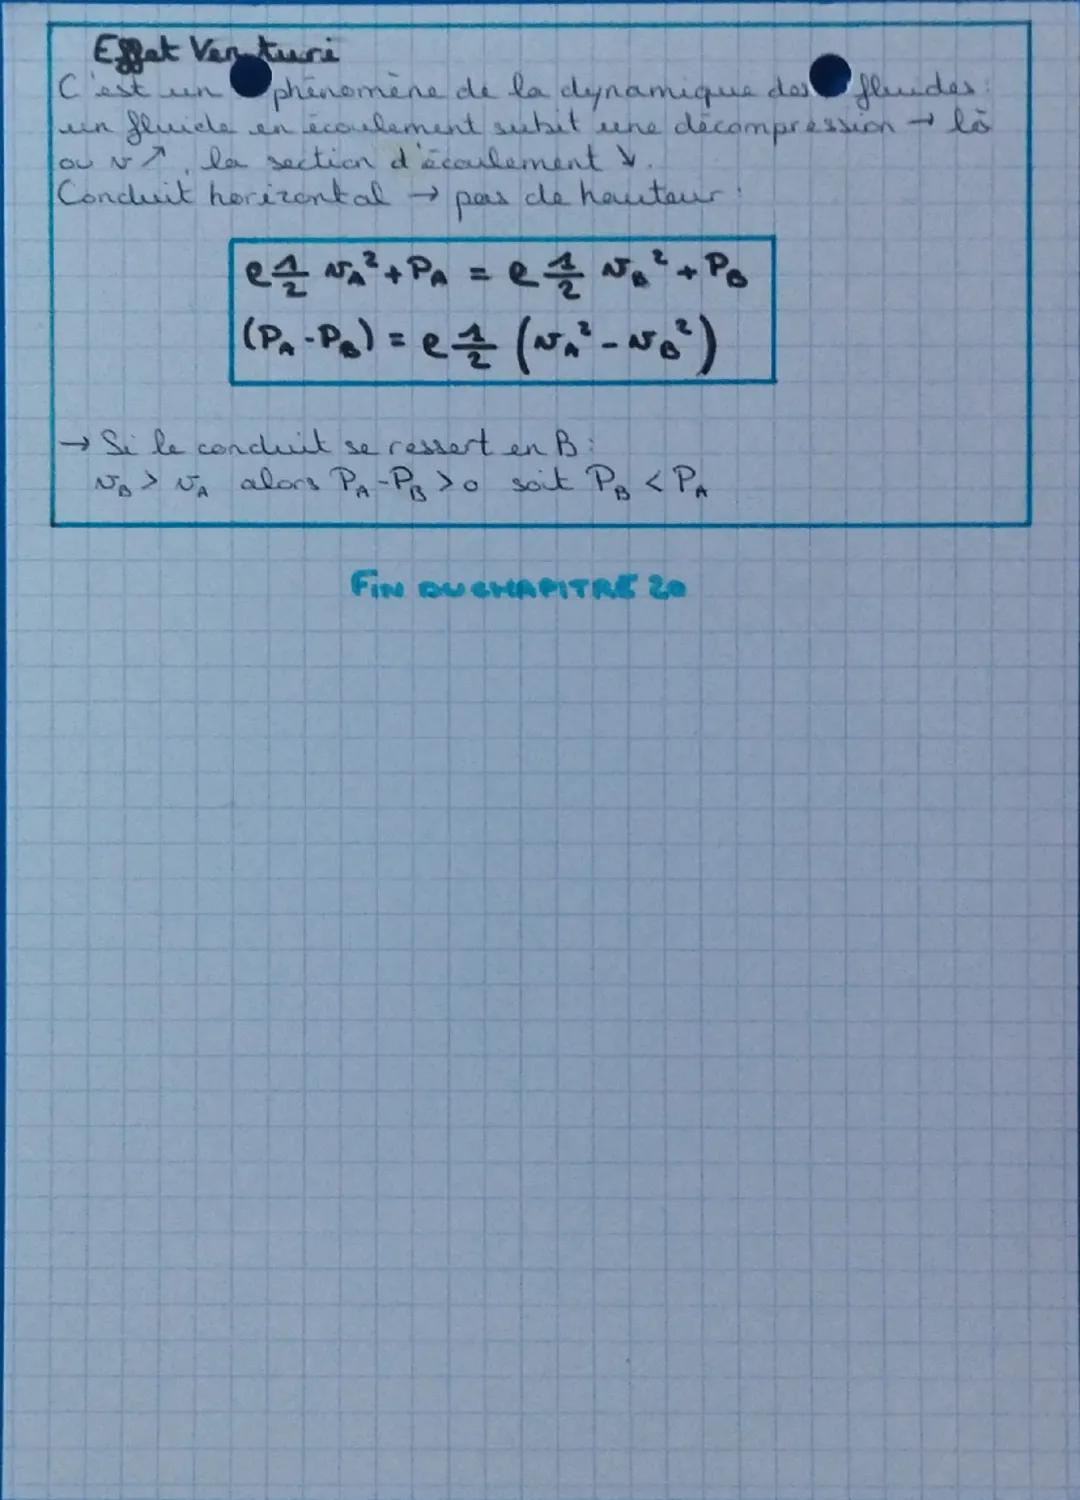 Effet Venturi
C'est un phénomène de la dynamique des fluides :
un fluide en écoulement subit une décompression → là
ou v ↗, la section d'écoulement ↘.
Conduit horizontal → pas de hauteur :
ρ 1/2 v_A² + P_A = ρ 1/2 v_B² + P_B
(P_A - P_B) = ρ 1/2 (v_A² - v_B²)
→ Si le conduit se ressert en B :
v_B > v_A alors P_A - P_B > 0 soit P_B < P_A
FIN DU CHAPITRE 20